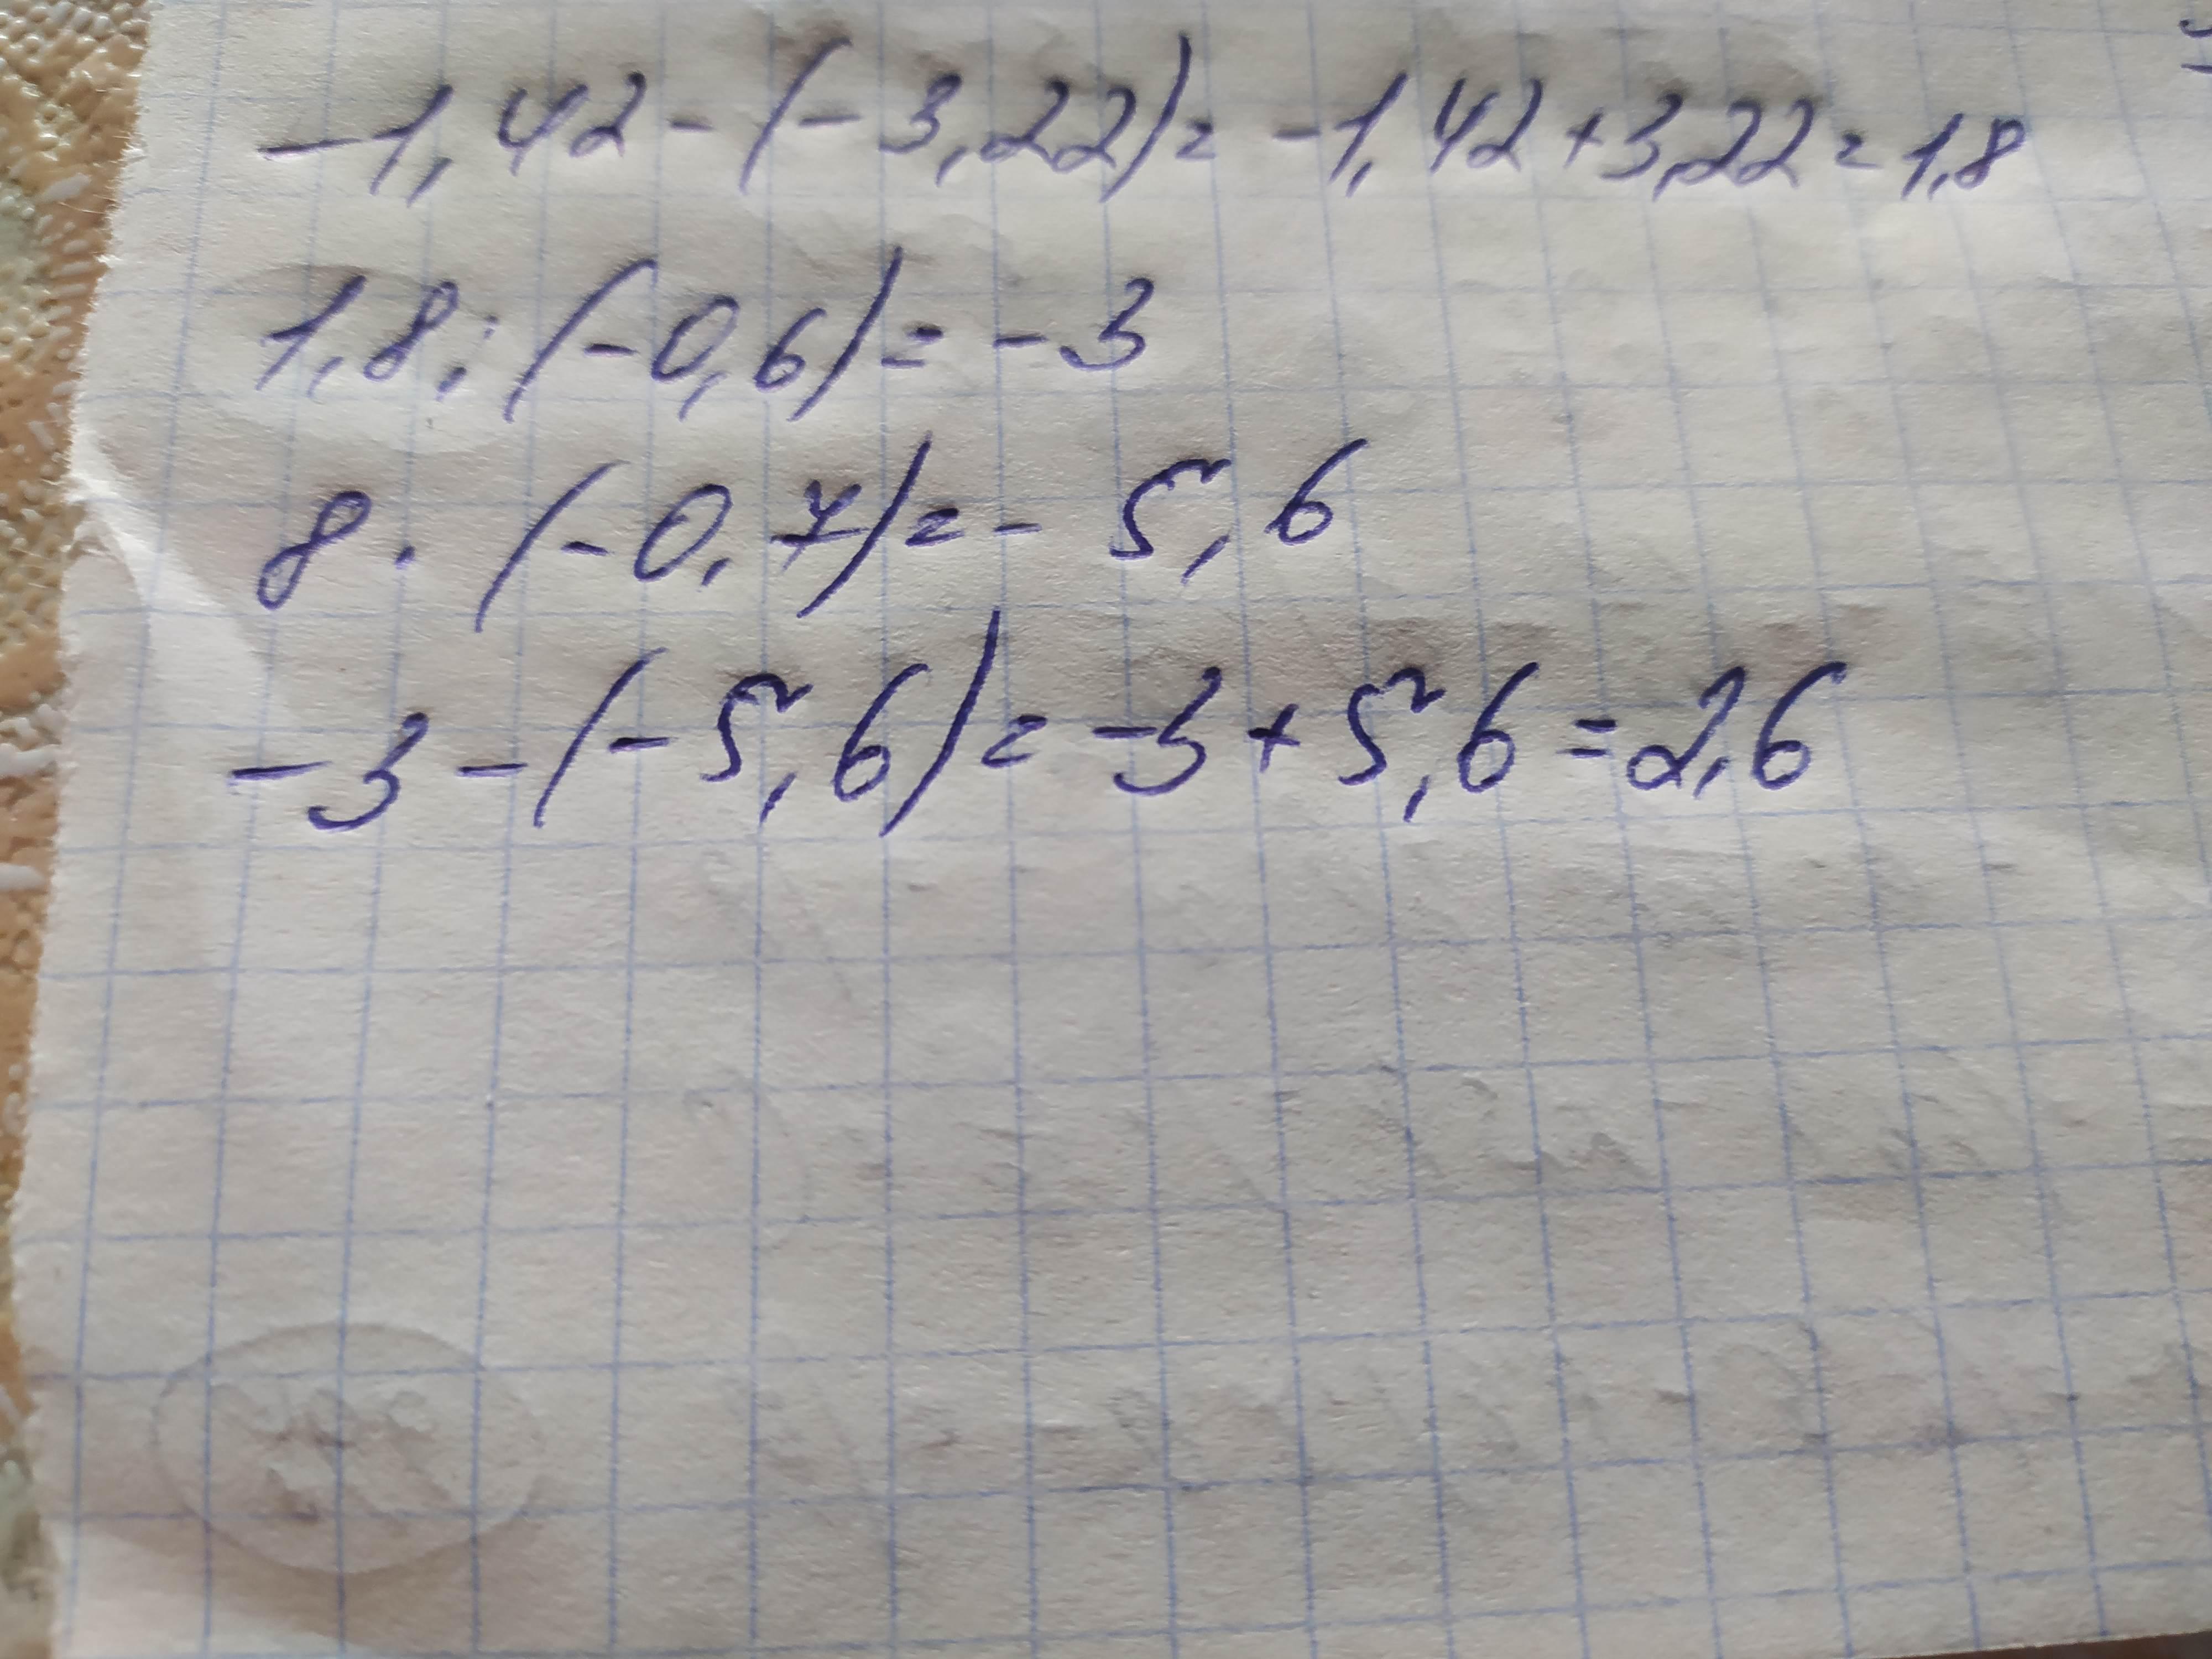 -1,42-(-3,22)=-1,42+3,22=1,8
1,8:(-0,6)=-3
8·(-0,7)=-5,6
-3-(-5,6)=-3+5,6=2,6